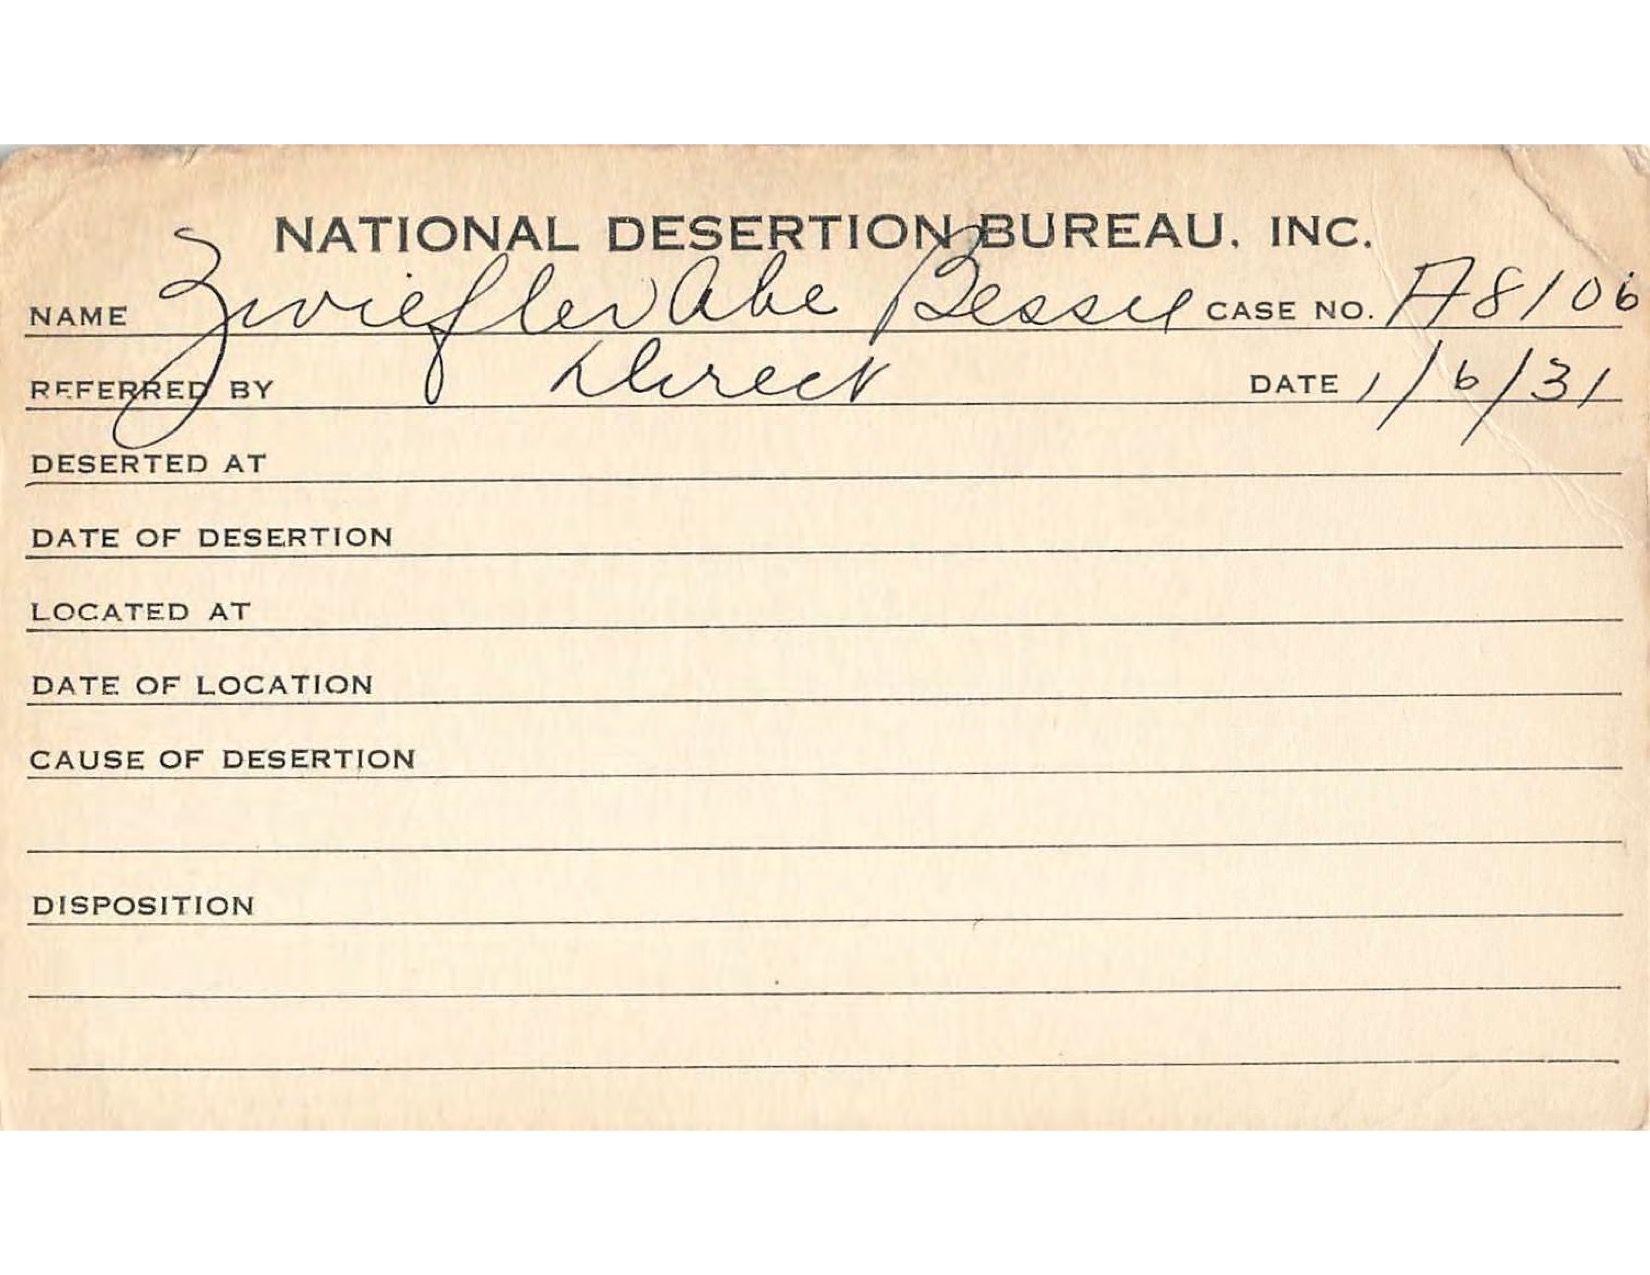 NATIONAL DESERTION BUREAU, INC.
NAME Zwiefler Abe Bessie CASE NO. A8106
REFERRED BY Direct DATE 1/6/31
DESERTED AT
DATE OF DESERTION
LOCATED AT
DATE OF LOCATION
CAUSE OF DESERTION
DISPOSITION